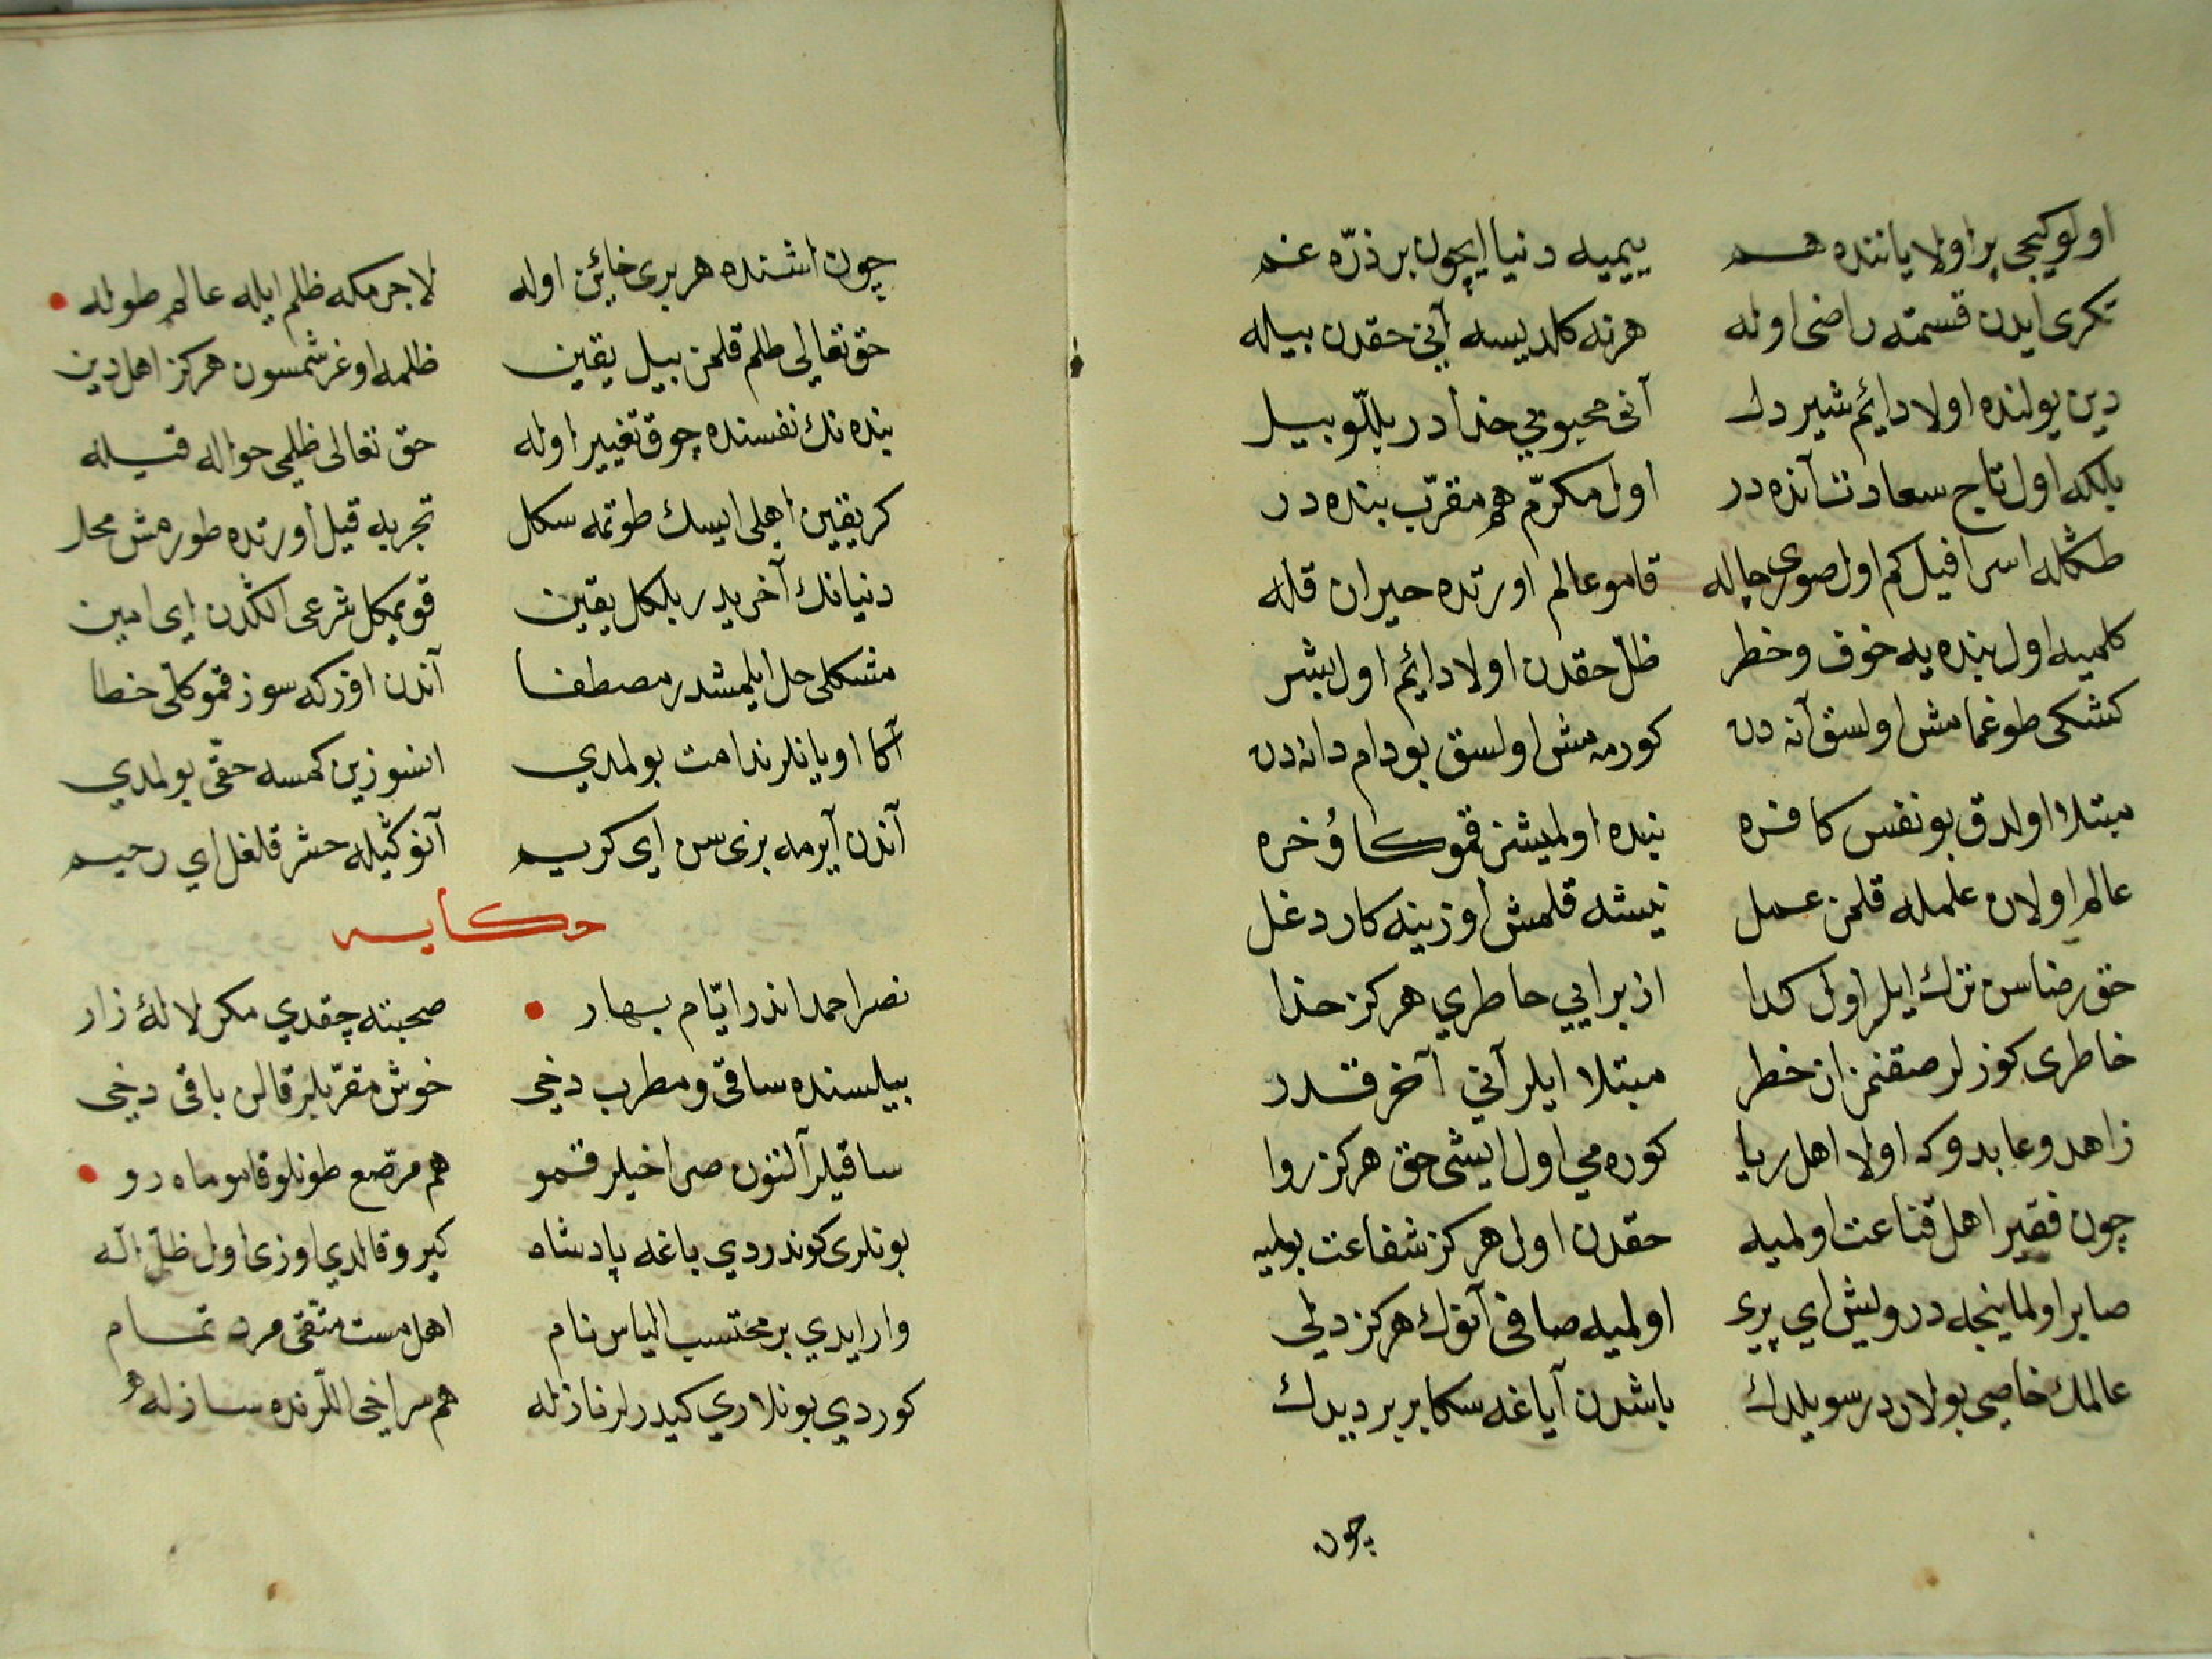 اولو كیچی بر اولا یاننده هم ییمیه دنیا ایچون بر ذرّه غم
تكری ایدن قسمته راضی اوله هر نه كلدیسه آنی حقدن بیله
دین یولنده اولا دایٔم شیر دل آنی محبوبی خدا در بللّو بیل
بلكه اول تاج سعادت آنده در اول مكرّم هم مقرّب بنده در
طڭله اسرافیل كم اول صوری چاله قامو عالم اورتده حیران قله
كلمیه اول بنده یه خوف و خطر ظلّ حقدن اولا دایٔم اول بشر
كشكی طوغمامش اولسق آنه دن كورمه مش اولسق بو دام دانه دن
مبتلا اولدق بو نفس كافره بنده اولمیشز قمو كاوُ خره
عالم اولان علمله قلمز عمل نیشه قلمش اوزینه كار دغل
حق رضاسن ترك ایلر اول كدا از برایی خاطری هركز خدا
خاطری كوزلر صقنمز از خطر مبتلا ایلر آنی آخر قدر
زاهد و عابد و كه اولا اهل ریا كوره می اول ایشی حق هركز روا
چون فقیر اهل قناعت اولمیه حقدن اول هركز شفاعت بولمیه
صابر اولماینجه درویش ای پری اولمیه صافی آنوك هركز دلی
عالمك خاصی بولاردر سویلدك باشدن آیاغه سكا بر بر دیدك
چون
چون اشنده هر بری خایٔن اوله لاجرمكه ظلم ایله عالم طوله
حق تعالی ظلم قلمز بیل یقین ظلمه اوغرشمسون هركز اهل دین
بنده نك نفسنده چوق تغییر اوله حق تعالی ظلمی حواله قیله
كر یقین اهلی ایسك طوتمه سكل تجربه قیل اورتده طورمش محل
دنیانك آخریدر بلكل یقین قویمكل شرعی الڭدن ای امین
مشكلی حل ایلمشدر مصطفا آندن اوزكه سوز قمو كلّی خطا
آڭا اویانلر ندامت بولمدی انسوزین كمسه حقّی بولمدی
آندن آیرمه بزی سن ای كریم آنوڭیله حشر قلغل ای رحیم
حكایه
نصر احمد اندر ایّام بهار صحبته چقدی مكر لالهٔ زار
بیلسنده ساقی و مطرب دخی خوش مقرّبلر قالن باقی دخی
ساقیلر آلتون صراخیلر قمو هم مرصّع طونلو قامو ماه رو
بونلری كوندردی باغه پادشاه كیرو قالدی اوزی اول ظلّ اله
وار ایدی بر محتسب الیاس نام اهل مست متّقی مرد تمام
كوردی بونلاری كیدرلر نازله هم سراخی اللرنده سازله